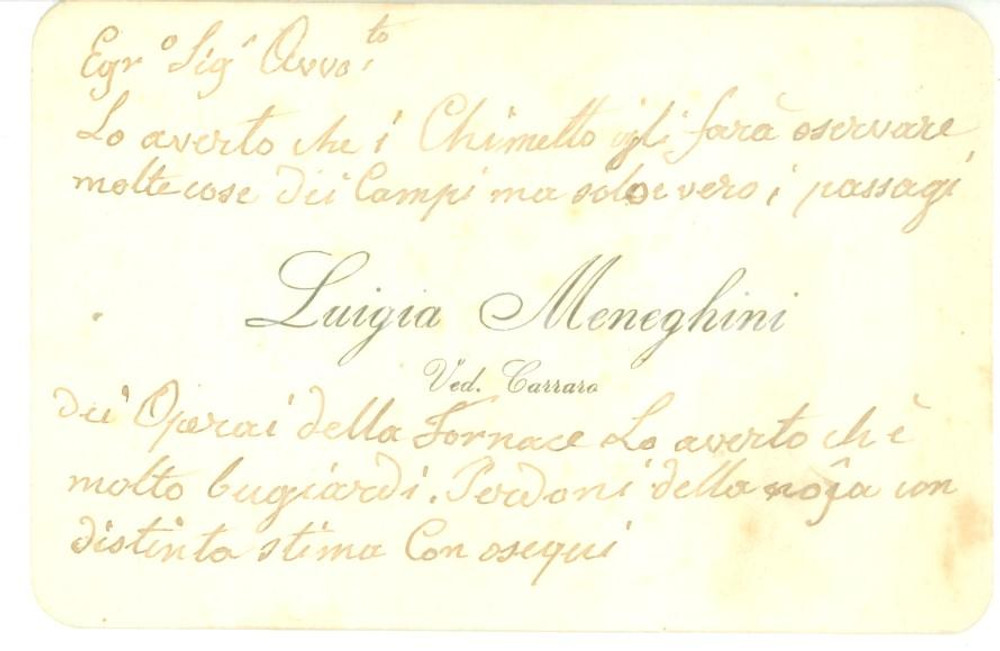 Egr° Sigr Avvo.to
Lo averto che i Chimetto gli farà oservare
molte cose dei Campi ma solo e vero i passagi
Luigia Meneghini
Ved. Carraro
dei Operai della Fornace Lo averto ch è
molto bugiardi. Perdoni della noja con
distinta stima Con osequi